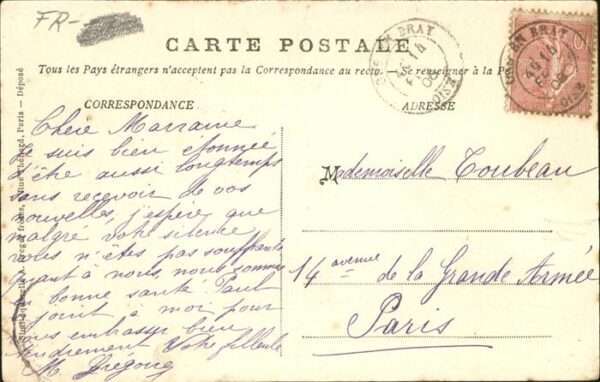 FR-
CARTE POSTALE
Tous les Pays étrangers n'acceptent pas la Correspondance au recto. — Se renseigner à la Po
CORRESPONDANCE
ADRESSE
Chère Marraine
Je suis bien étonnée
d'être aussi longtemps
sans recevoir de vos
nouvelles, j'espère que
malgré votre silence
vous n'êtes pas souffrante
quant à nous, nous sommes
en bonne santé Paul
joint à moi pour
vous embrasser bien
tendrement Votre filleule
M.
Mademoiselle Toubeau
14 avenue de la Grande Armée
Paris
EN BRAY
OISE
EN BRAY
OISE
frères, Paris — Déposé